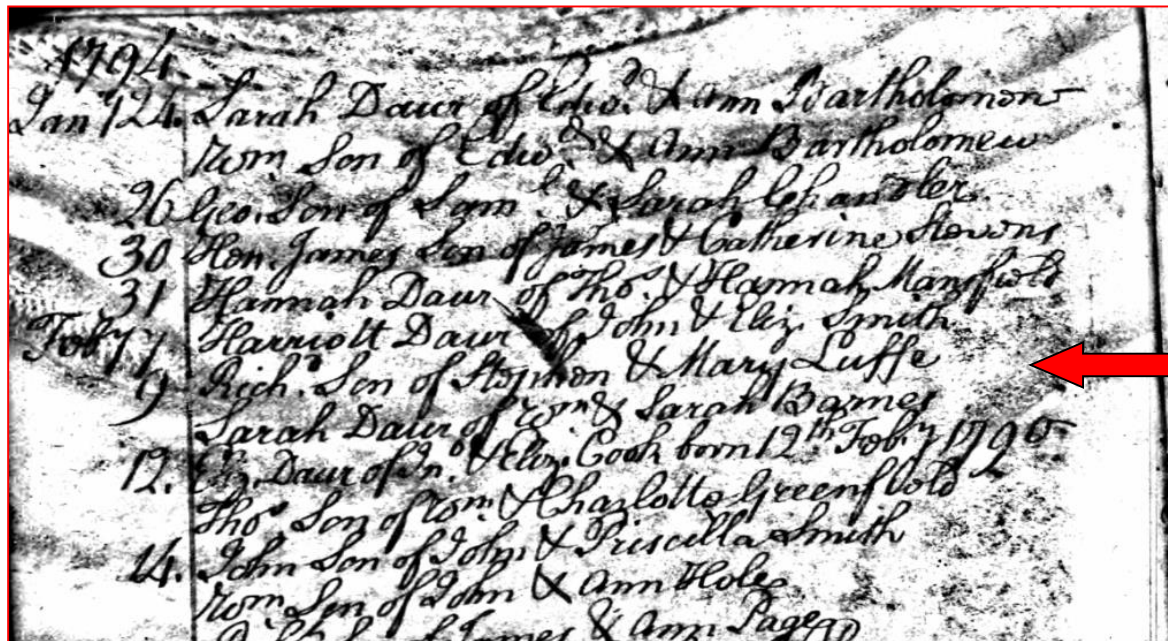 1794
Jan ry 24. Sarah Daur of Edwd. & Ann Bartholomew
Wm. Son of Edwd. & Ann Bartholomew
26 Geo. Son of Saml. & Sarah Chandler
30 Hen. James Son of James & Catherine Stevens
31 Hannah Daur of Thos. & Hannah Mansfield
Harriott Daur of John & Eliz. Smith
Feby 7 Richd. Son of Stephen & Mary Luffe
9 Sarah Daur of Wm. & Sarah Barnes
12. Eliz. Daur of Jno. & Eliz. Cook born 12th. Feby
Thos Son of Wm. & Charlotte Greenfield
14. John Son of John & Priscilla Smith
Wm. Son of John & Ann Hole
Son of James & Ann Page